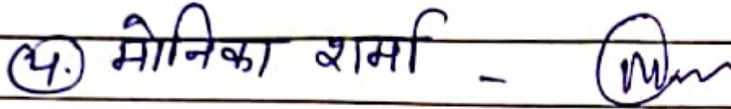 ४. मोनिका शर्मा -